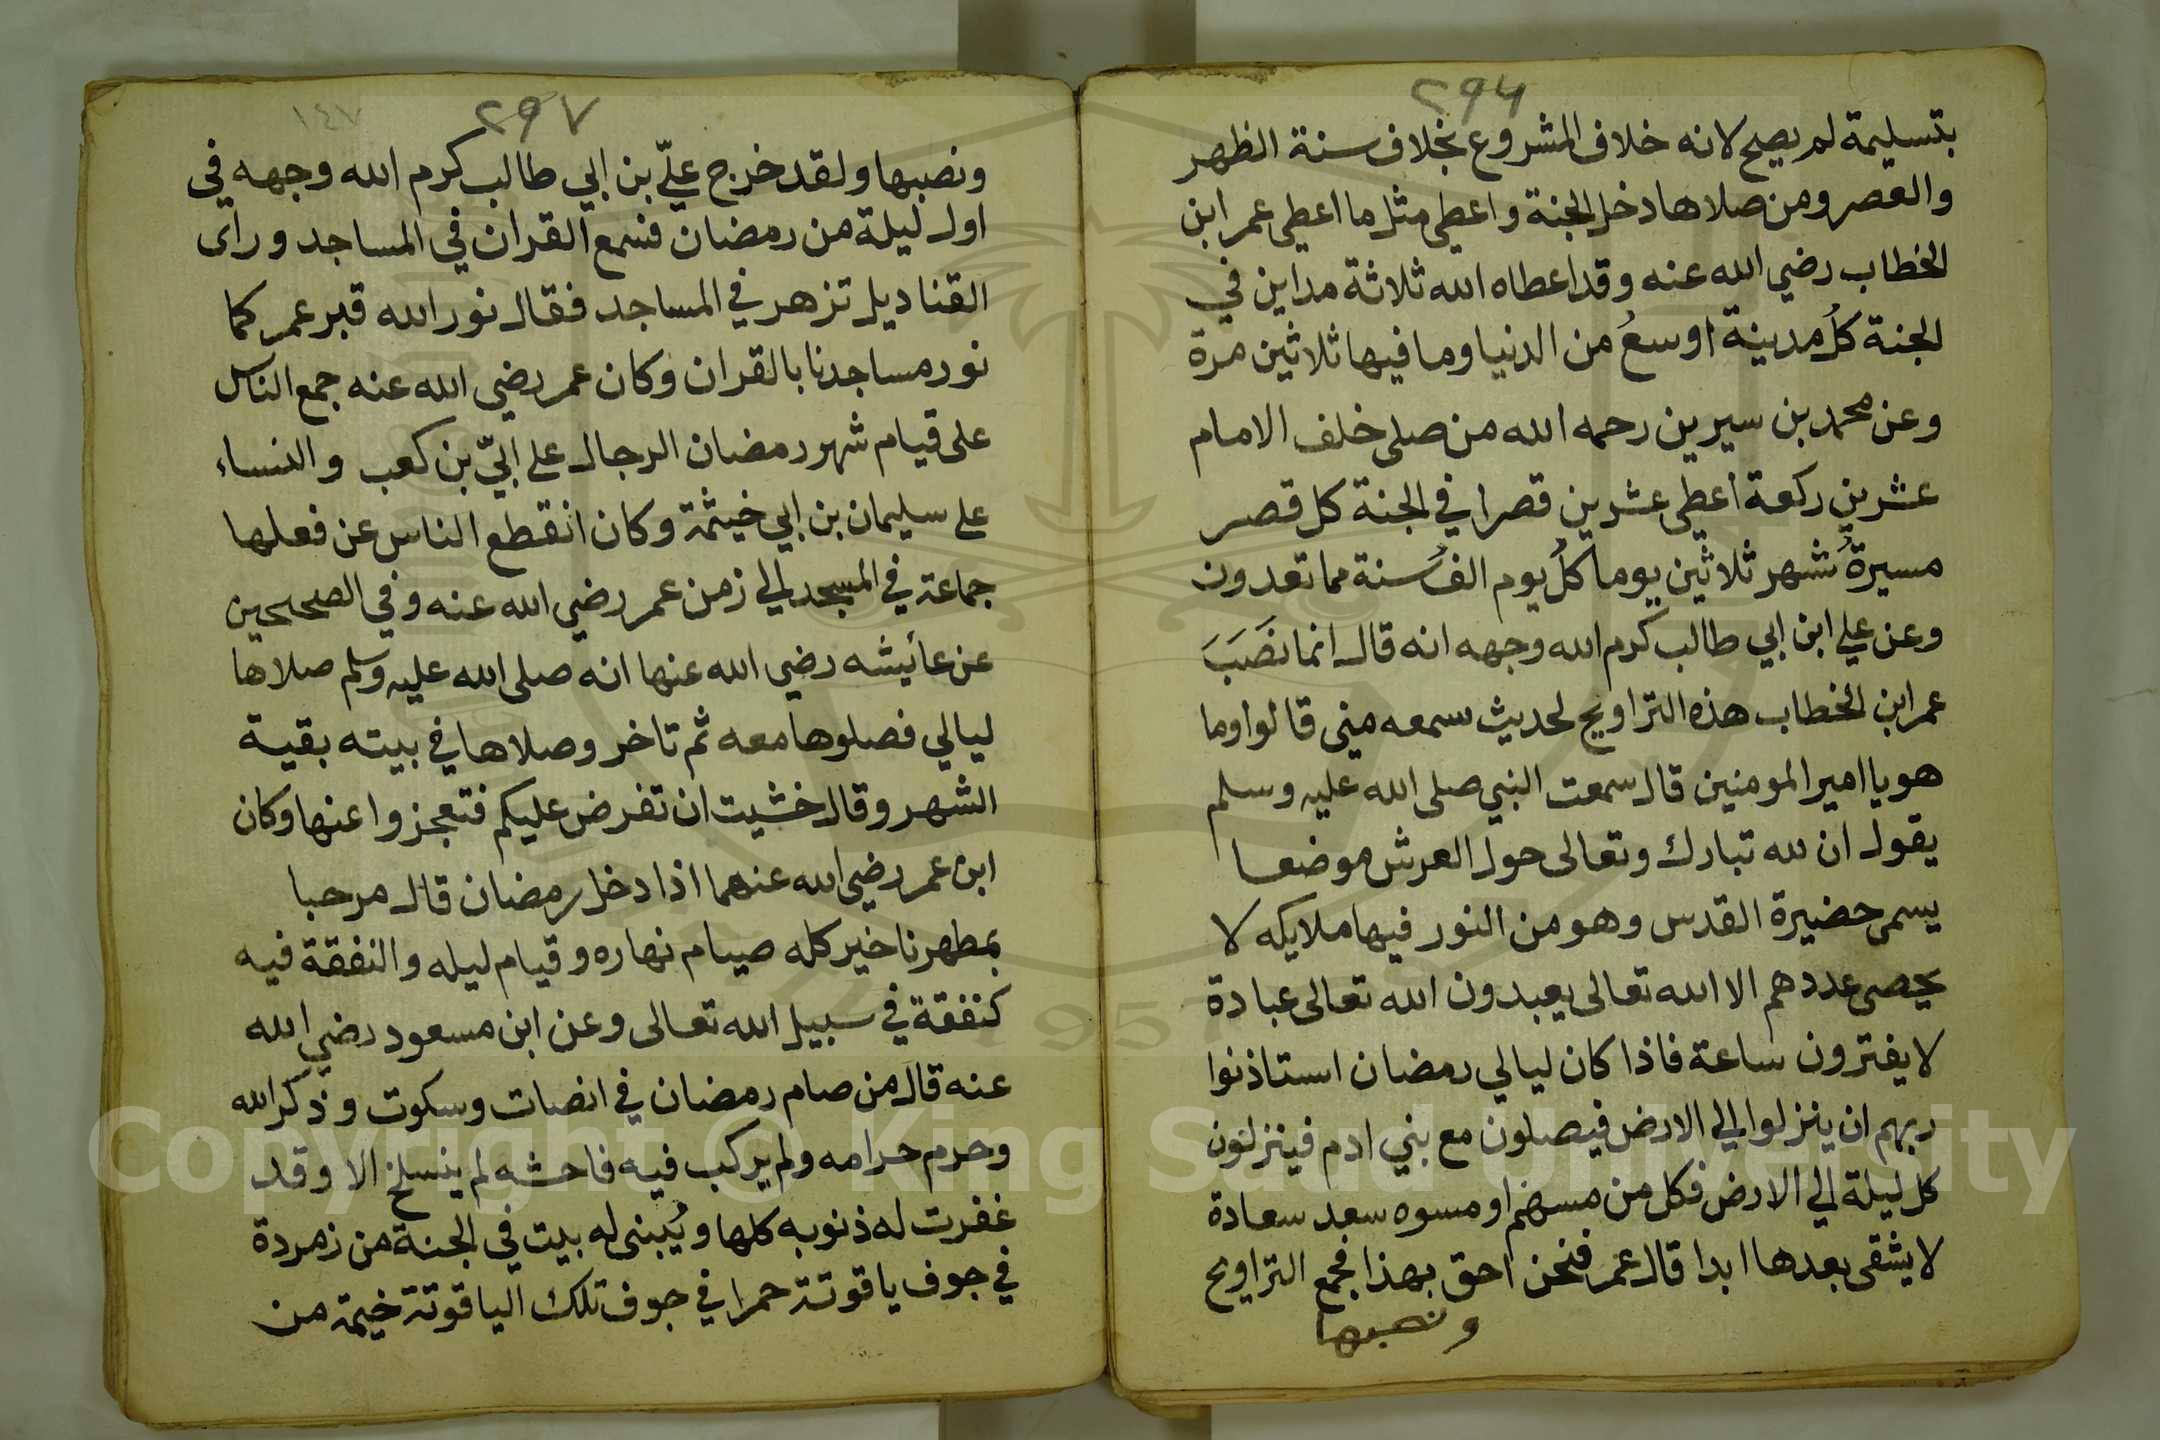 ٢٩٦
بتسليمة لم يصح لانه خلاف المشروع بخلاف سنة الظهر
والعصر ومن صلاها دخل الجنة واعطي مثل ما اعطي عمر ابن
الخطاب رضي الله عنه وقد اعطاه الله ثلاثة مداين في
الجنة كلُ مدينة اوسعُ من الدنيا وما فيها ثلاثين مرة
وعن محمد بن سيرين رحمه الله من صلى خلف الامام
عشرين ركعة اعطي عشرين قصرا في الجنة كل قصر
مسيرةُ شهر ثلاثين يوما كلُ يوم الفُ سنة مما تعدون
وعن علي ابن ابي طالب كرم الله وجهه انه قال انما نصَبَ
عمر ابن الخطاب هذه التراويح لحديث سمعه مني قالوا وما
هو يا امير المومنين قال سمعت النبي صلى الله عليه وسلم
يقول ان لله تبارك وتعالى حول العرش موضعا
يسمى حضيرة القدس وهو من النور فيها ملايكه لا
يحصى عددهم الا الله تعالى يعبدون الله تعالى عبادة
لا يفترون ساعة فاذا كان ليالي رمضان استاذنوا
ربهم ان ينزلوا الي الارض فيصلون مع بني ادم فينزلون
كل ليلة الي الارض فكل من مسهم او مسوه سعد سعادة
لا يشقى بعدها ابدا قال عمر فنحن احق بهذا فجمع التراويح
ونصبها
٢٩٧
١٤٧
ونصبها ولقد خرج عليّ بن ابي طالب كرم الله وجهه في
اول ليلة من رمضان فسمع القران في المساجد وراى
القناديل تزهر في المساجد فقال نور الله قبر عمر كما
نور مساجدنا بالقران وكان عمر رضي الله عنه جمع الناس
على قيام شهر رمضان الرجال على ابيّ بن كعب والنساء
على سليمان بن ابي خيثمة وكان انقطع الناس عن فعلها
جماعة في المسجد الي زمن عمر رضي الله عنه وفي الصحيحين
عن عائيشه رضي الله عنها انه صلى الله عليه وسلم صلاها
ليالي فصلوها معه ثم تاخر وصلاها في بيته بقية
الشهر وقال خشيت ان تفرض عليكم فتعجزوا عنها وكان
ابن عمر رضي الله عنهما اذا دخل رمضان قال مرحبا
بمطهرنا خير كله صيام نهاره وقيام ليله والنفقة فيه
كنفقة في سبيل الله تعالى وعن ابن مسعود رضي الله
عنه قال من صام رمضان في انصات وسكوت وذكر الله
وحرم حرامه ولم يركب فيه فاحشه لم ينسلخ الا وقد
غفرت له ذنوبه كلها ويُبنى له بيت في الجنة من زمردة
في جوف ياقوتة حمرا في جوف تلك الياقوتة خيمة من
1957
Copyright © King Saud University